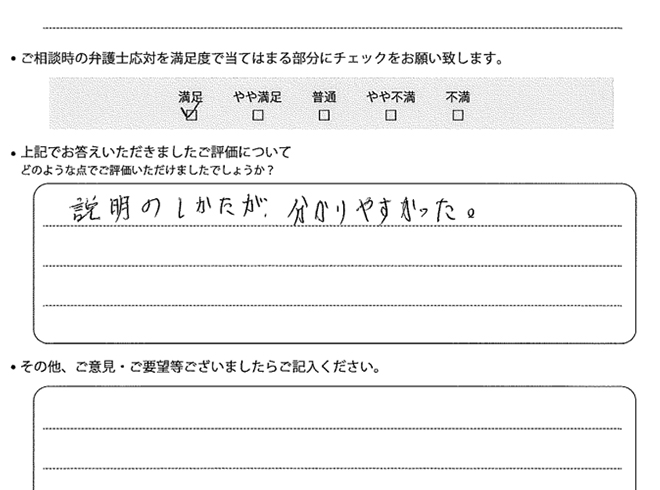 • ご相談時の弁護士応対を満足度で当てはまる部分にチェックをお願い致します。
満足 やや満足 普通 やや不満 不満
☑ □ □ □ □
• 上記でお答えいただきましたご評価について
どのような点でご評価いただけましたでしょうか？
説明のしかたが、分かりやすかった。
• その他、ご意見・ご要望等ございましたらご記入ください。